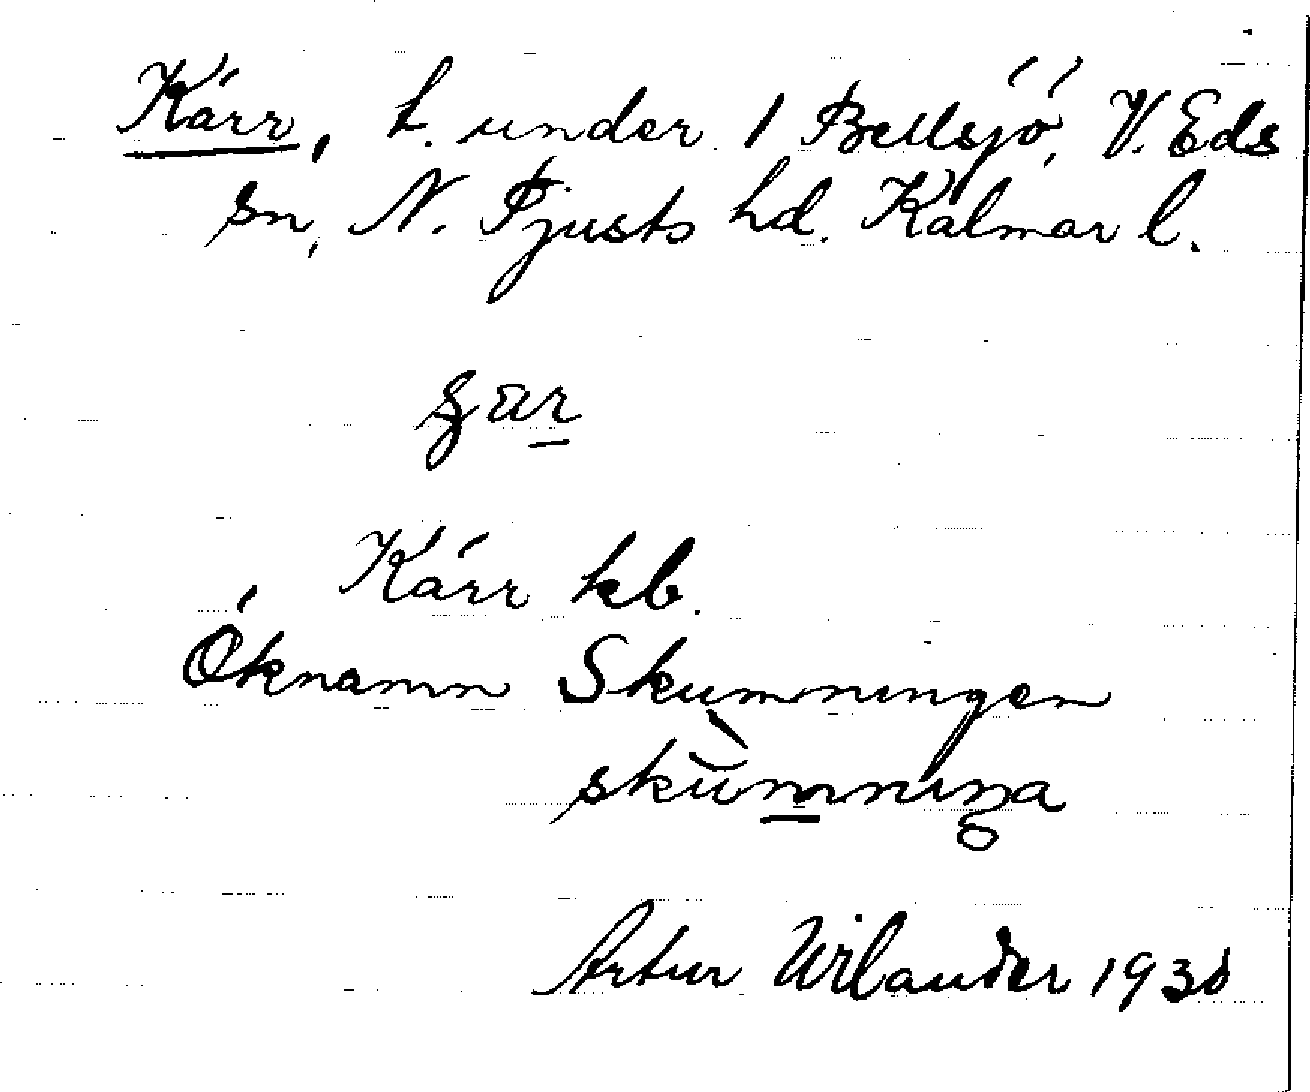 Kärr, t. under 1 Bellsjö, V. Eds
sn, N. Tjusts hd. Kalmar l.
Kärr kb.
Öknamn Skumningen
Artur Wilander 1930